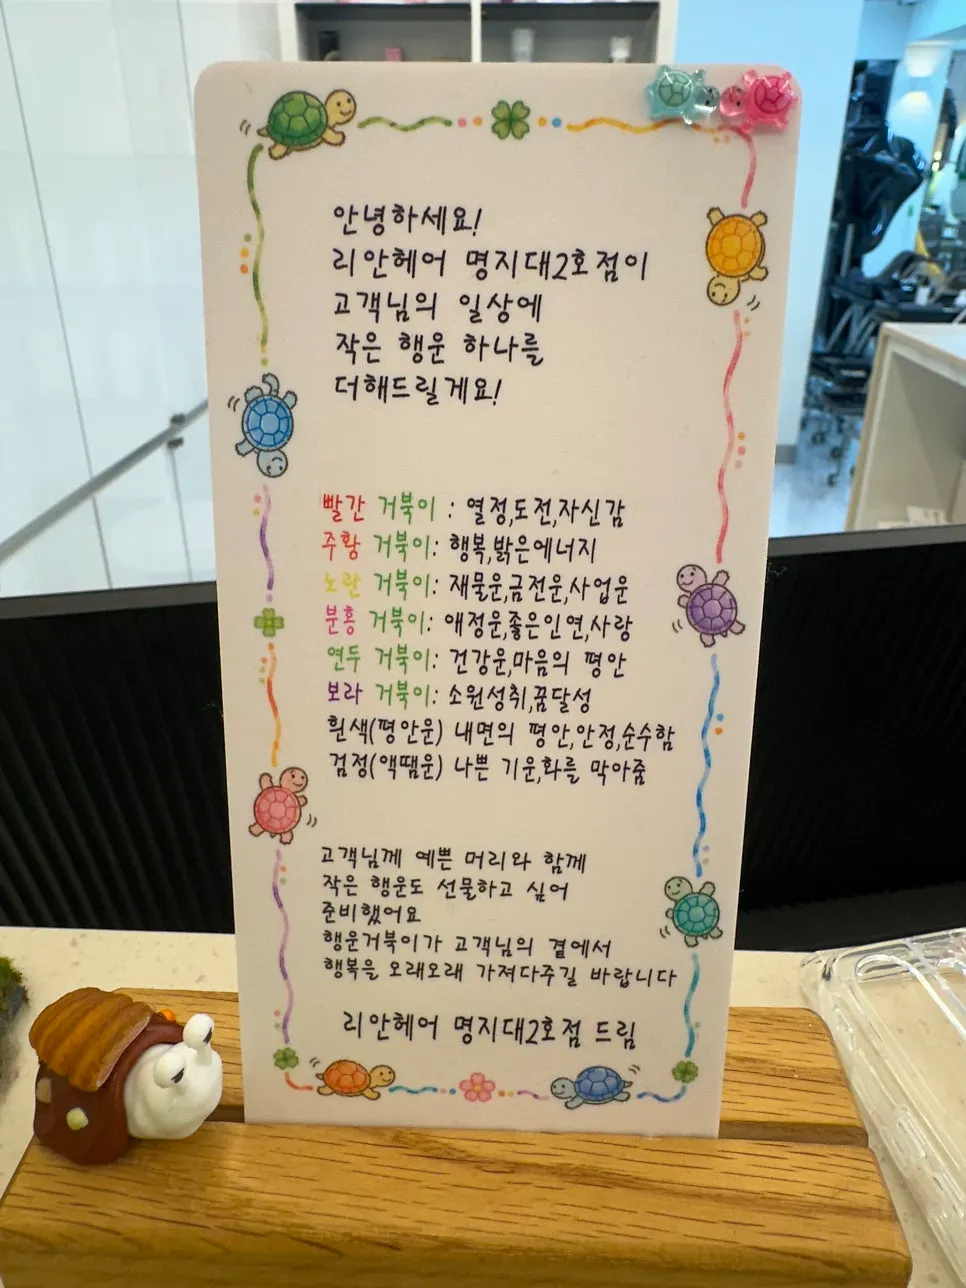 안녕하세요!
리안헤어 명지대2호점이
고객님의 일상에
작은 행운 하나를
더해드릴게요!
빨간 거북이 : 열정,도전,자신감
주황 거북이: 행복,밝은에너지
노란 거북이: 재물운,금전운,사업운
분홍 거북이: 애정운,좋은인연,사랑
연두 거북이: 건강운,마음의 평안
보라 거북이: 소원성취,꿈달성
흰색(평안운) 내면의 평안,안정,순수함
검정(액땜운) 나쁜 기운,화를 막아줌
고객님께 예쁜 머리와 함께
작은 행운도 선물하고 싶어
준비했어요
행운거북이가 고객님의 곁에서
행복을 오래오래 가져다주길 바랍니다
리안헤어 명지대2호점 드림